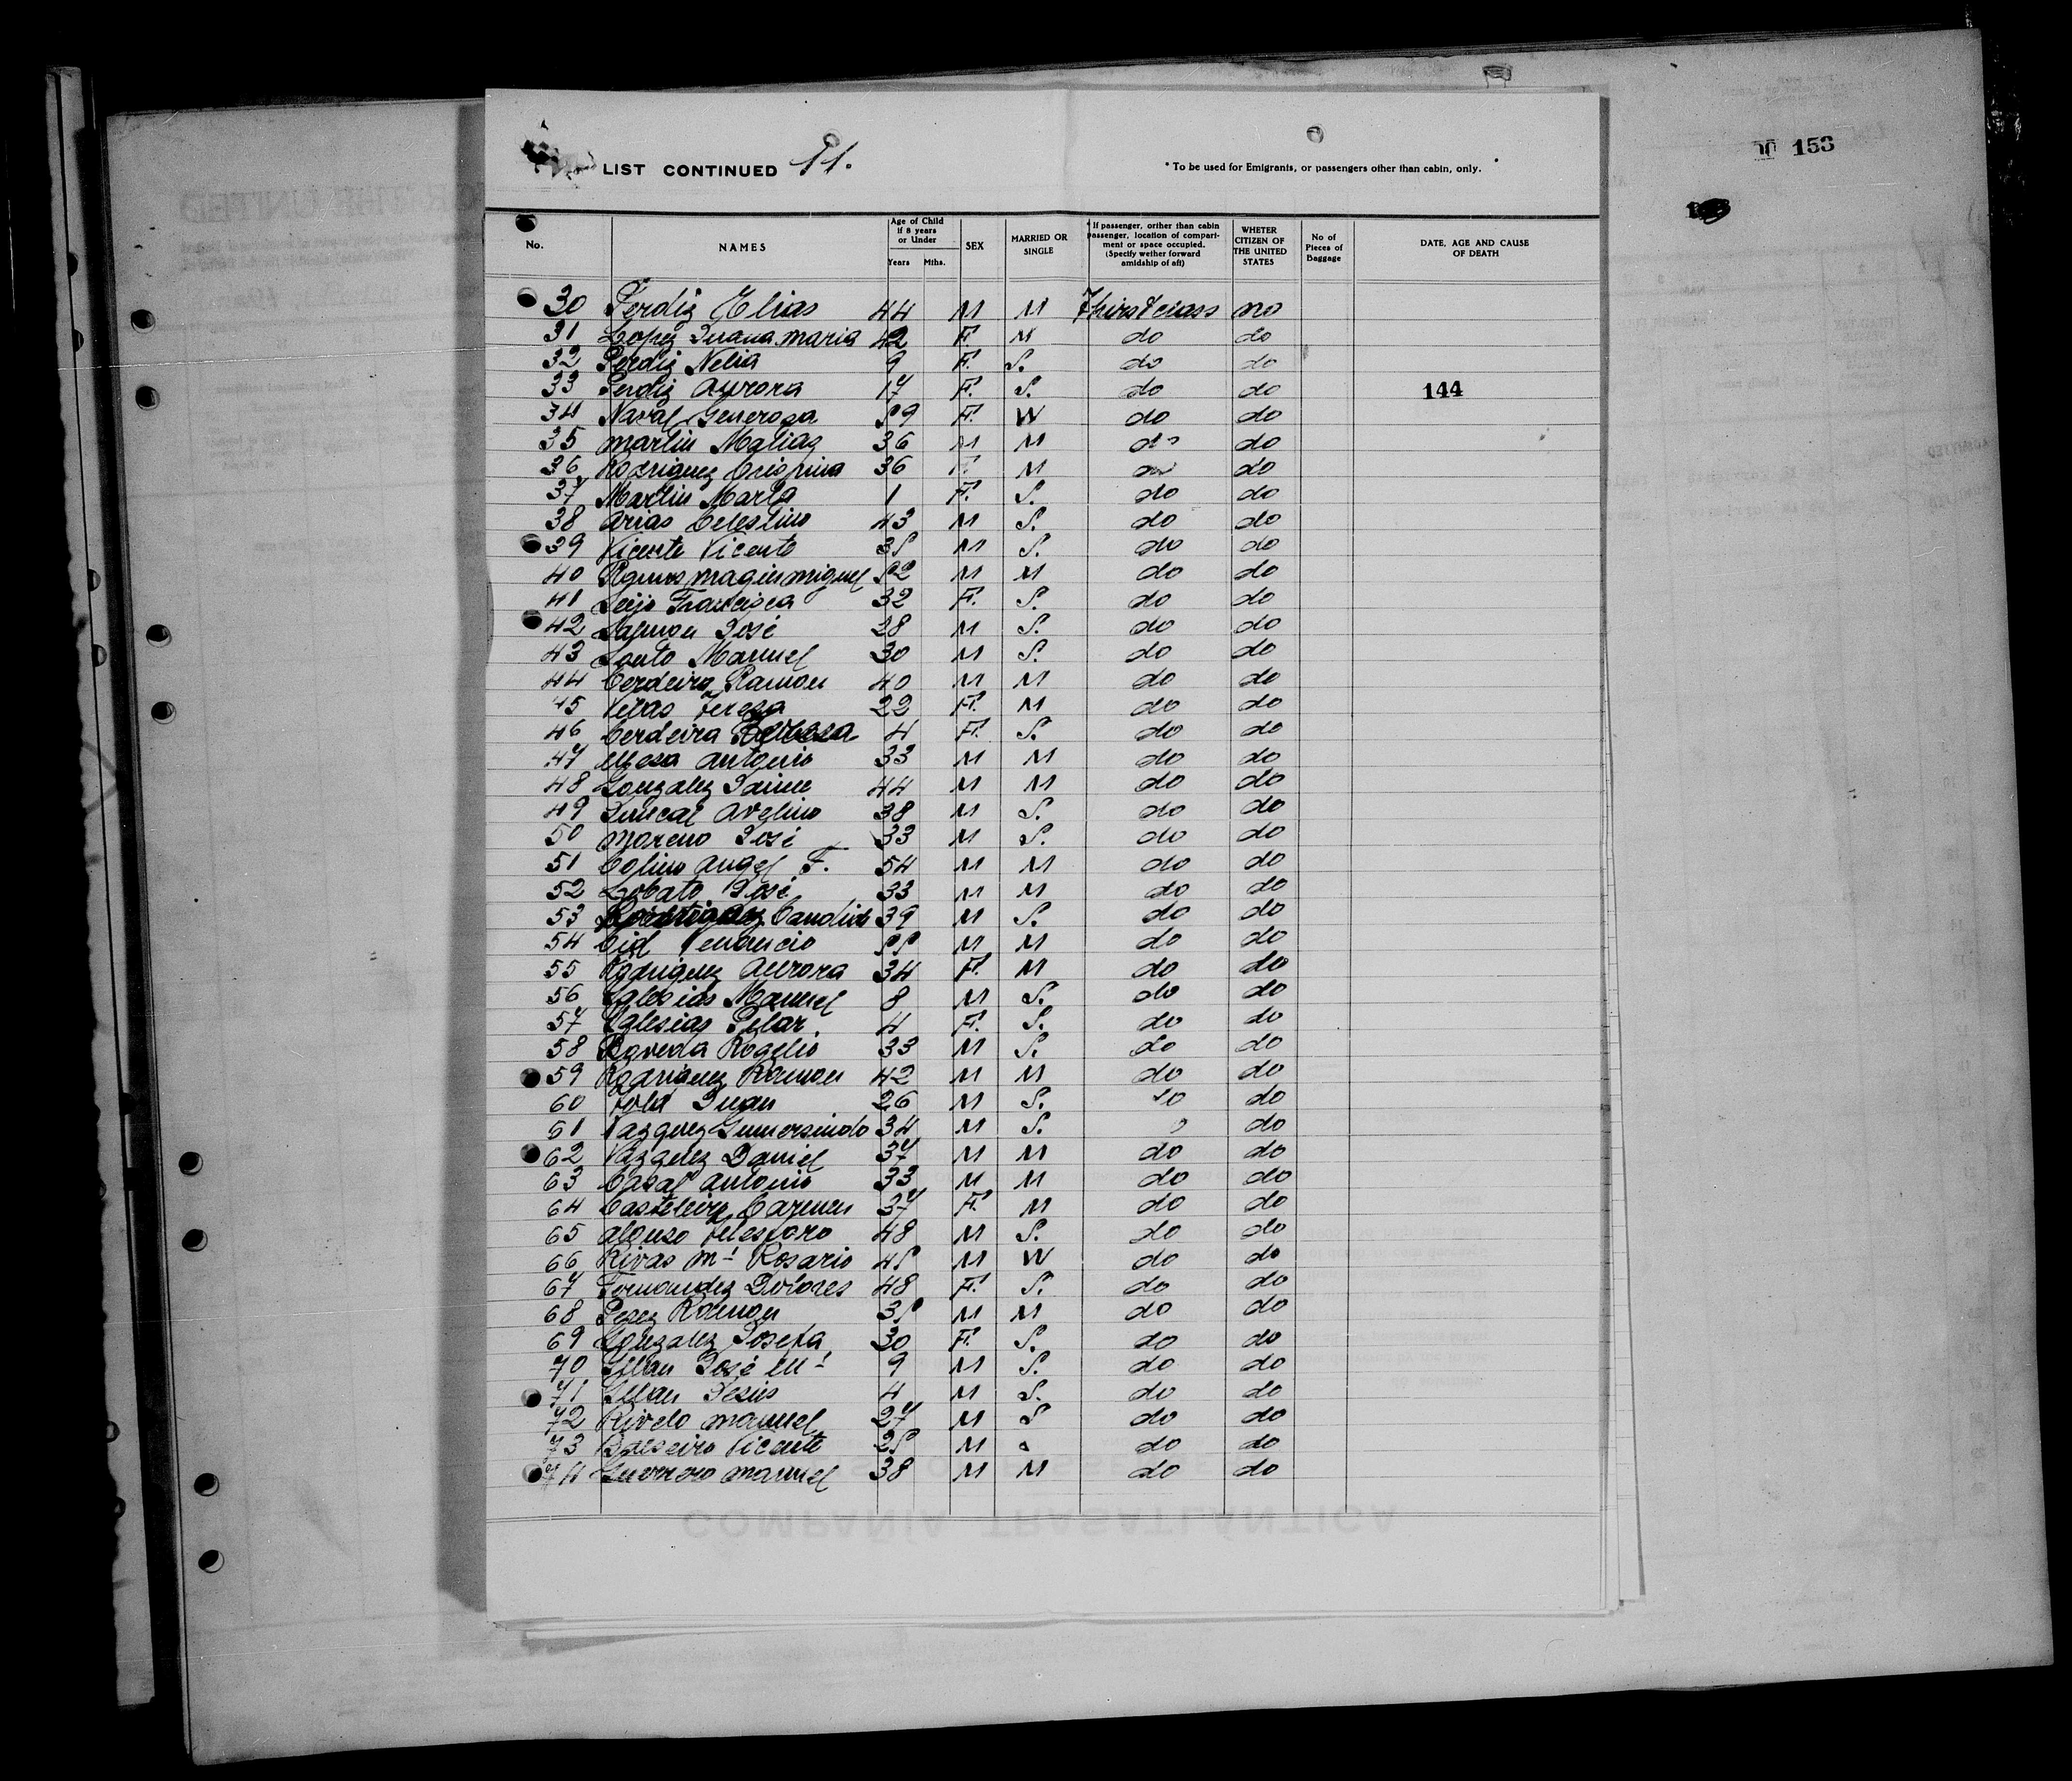 LIST CONTINUED 11.
* To be used for Emigrants, or passengers other than cabin, only. *
00 153
No.
NAMES
Age of Child if 8 years or Under
Years Mths.
SEX
MARRIED OR SINGLE
* If passenger, orither than cabin passenger, location of compartment or space occupied. (Specify wether forward amidship of aft)
WHETER CITIZEN OF THE UNITED STATES
No of Pieces of Baggage
DATE, AGE AND CAUSE OF DEATH
30 Perdiz Elias 44 M M Third class no
31 Lopez Juana maria 42 F. M do do
32 Perdiz Nelia 9 F. S. do do
33 Perdiz Aurora 17 F. S. do do 144
34 Naval Generosa 59 F. W do do
35 Martin Matias 36 M M do do
36 Rodriguez Crispina 36 F. M do do
37 Martin Maria 1 F. S. do do
38 Arias Celestino 43 M S. do do
39 Vicente Vicente 35 M S. do do
40 magin miguel 52 M M do do
41 Seijo Francisca 32 F. S. do do
42 José 28 M S. do do
43 Souto Manuel 30 M S. do do
44 Cerdeira Ramon 40 M M do do
45 Teresa 22 F. M do do
46 Cerdeira 4 F. S. do do
47 Mesa Antonio 33 M M do do
48 Gonzalez Jaime 44 M M do do
49 Juncal Avelino 38 M S. do do
50 Moreno José 33 M S. do do
51 Colino Angel F. 54 M M do do
52 Lobato José 33 M M do do
53 Candido 39 M S. do do
54 Cid Venancio 55 M M do do
55 Rodriguez Aurora 34 F. M do do
56 Iglesias Manuel 8 M S. do do
57 Iglesias Pilar 4 F. S. do do
58 Poveda Rogelio 33 M S. do do
59 Rodriguez Ramon 42 M M do do
60 Juan 26 M S. do do
61 Vazquez Gumersindo 34 M S. do
62 Vazquez Daniel 37 M M do do
63 Casal Antonio 33 M M do do
64 Casteleiro Carmen 37 F. M do do
65 Alonso Telesforo 48 M S. do do
66 Rivas Mª Rosario 45 M W do do
67 Fernandez Dolores 48 F. S. do do
68 Perez Ramon 35 M M do do
69 Gonzalez Josefa 30 F. S. do do
70 José Mª 9 M S. do do
71 Jesus 4 M S. do do
72 Manuel 27 M S do do
73 Balseiro Vicente 25 M do do
74 Guerrero Manuel 38 M M do do
COMPAÑIA TRASATLANTICA